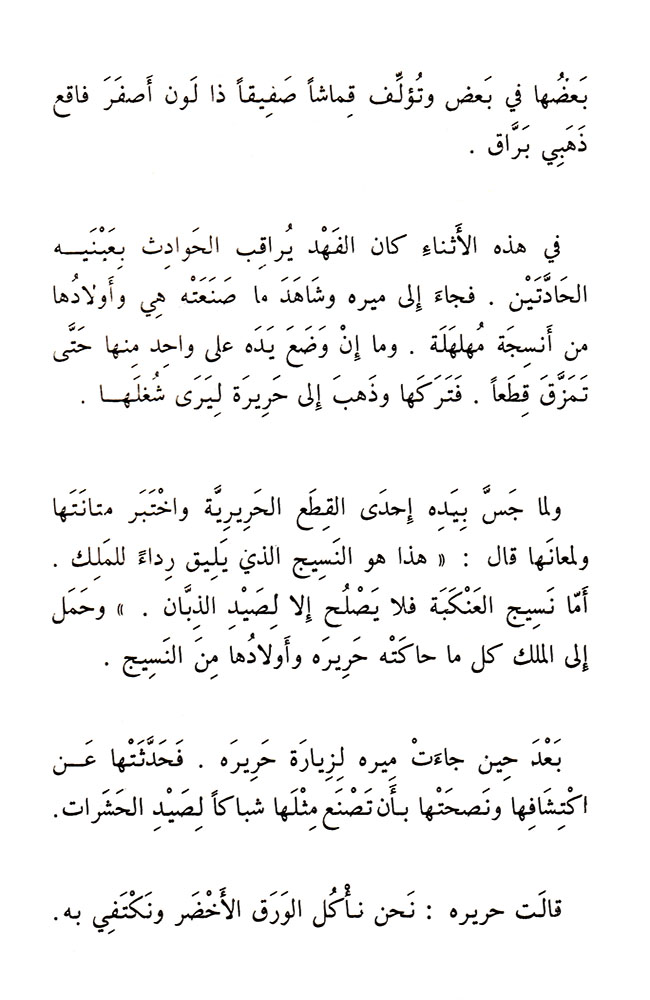 بَعضُها في بَعض وتُؤلِّف قِماشاً صَفِيقاً ذا لَون أَصفَرَ فاقع
ذَهَبِي بَرَّاق .
في هذه الأَثناءِ كان الفَهْد يُراقِب الحَوادِث بِعَيْنَيـــه
الحَادَّتَيْن . فجاءَ إِلى ميره وشَاهَدَ ما صَنَعَتْه هِي وأَولادُها
من أَنسِجَة مُهلهَلَة . وما إِنْ وَضَعَ يَدَه على واحِدٍ مِنها حَتَّى
تَمَزَّقَ قِطَعاً . فَتَرَكَها وذَهبَ إِلى حَرِيرَة لِيَرَى شُغلَهــا .
ولما جَسَّ بِيَدِه إِحدَى القِطَع الحَرِيرِيَّة واخْتَبَر متانَتَها
ولمعانَها قال : « هذا هو النَسِيج الذي يَلِيق رِداءً للمَلِك .
أَمّا نَسِيج العَنْكَبَة فلا يَصْلُح إِلا لِصَيْدِ الذِبَّان . » وحَمَل
إِلى الملك كل ما حاكَتْه حَرِيرَه وأَولادُها مِنَ النَسِيج .
بَعْدَ حِين جاءَتْ مِيره لِزِيارَة حَرِيرَه . فَحَدَّثَتْها عَـــن
اكْتِشَافِها ونَصحَتْها بأَن تَصْنَع مِثْلَها شباكاً لِصَيْدِ الحَشَرات.
قالَت حريره : نَحن نأْكُل الوَرَق الأَخْضَر ونَكْتَفِي به.